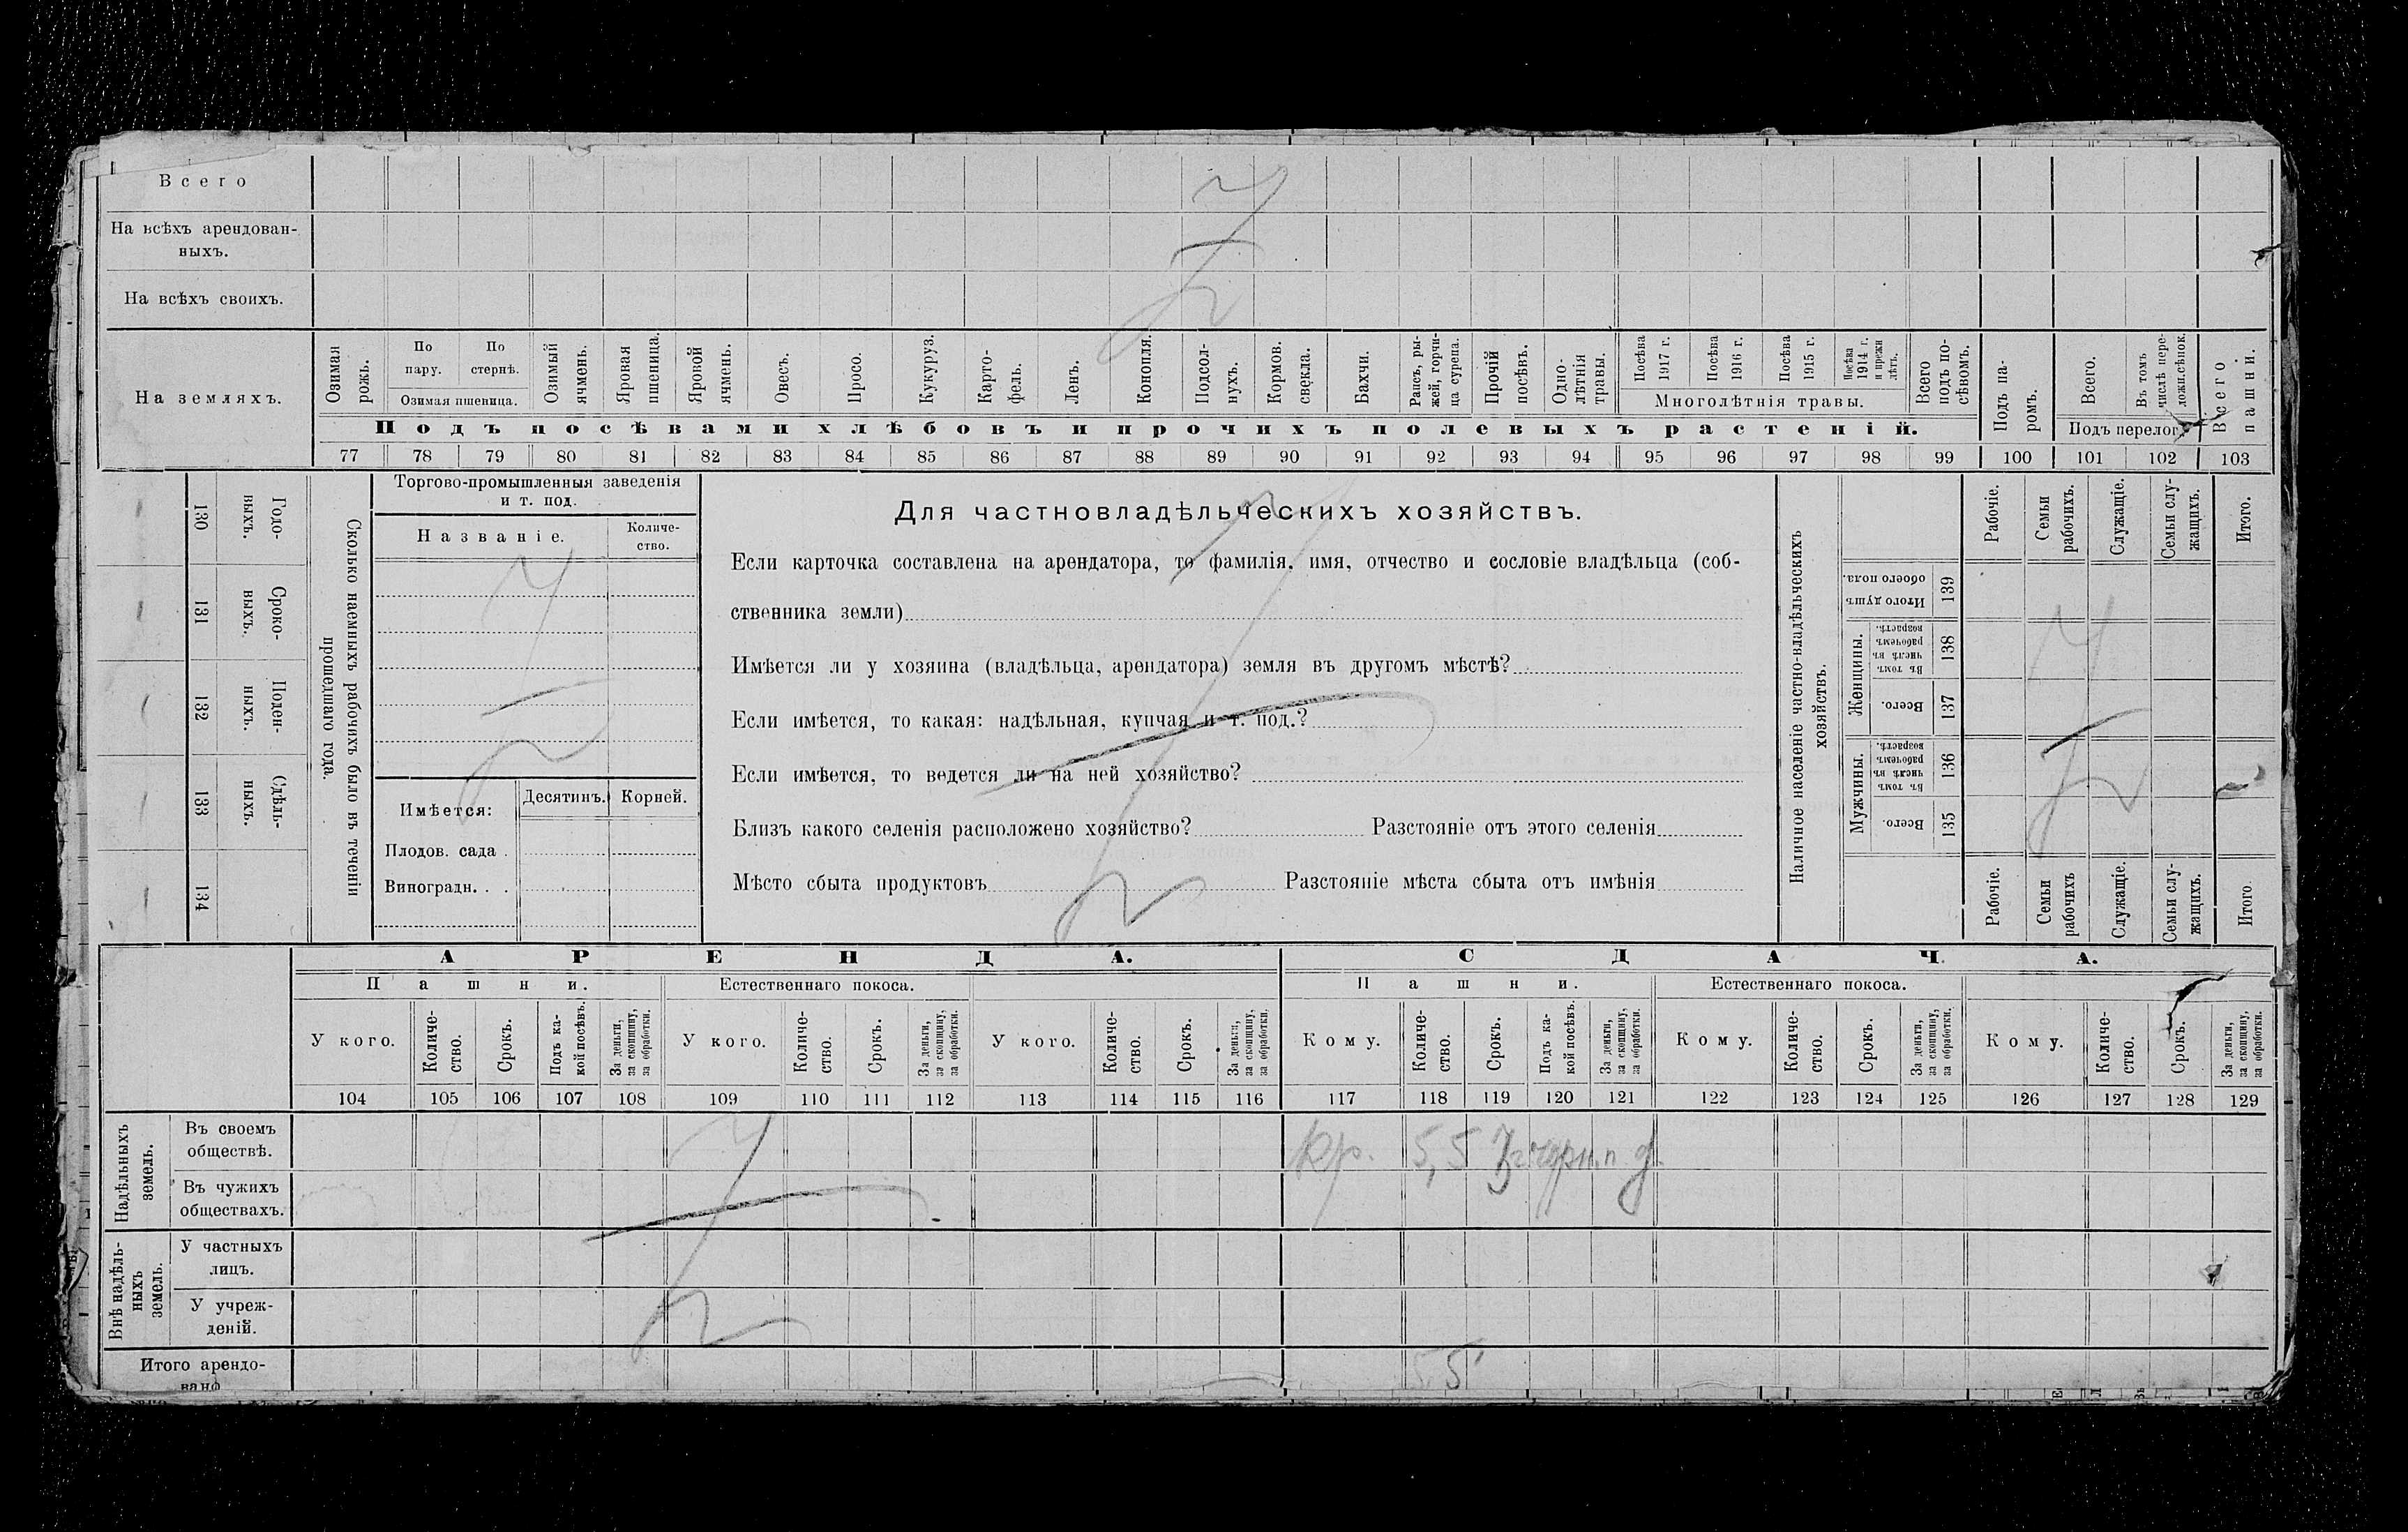 Всего
На всѣхъ арендован-
ныхъ.
На всѣхъ своихъ.
На земляхъ.
Озимая рожь.
По пару.
По стернѣ.
Озимая пшеница.
Озимый ячмень.
Яровая пшеница.
Яровой ячмень.
Овесъ.
Просо.
Кукуруз.
Карто-
фель.
Ленъ.
Конопля.
Подсол-
нухъ.
Кормов. свекла.
Бахчи.
Рапсъ, ры-
жей, горчи-
ца сурепа.
Прочій посѣвъ.
Одно-
лѣтнія травы.
Посѣва 1917 г.
Посѣва 1916 г.
Посѣва 1915 г.
Посѣва 1914 г. и прежн лѣтъ.
Многолѣтнія травы.
Всего подъ по-
сѣвомъ.
Подъ па-
ромъ.
Всего.
Въ томъ числѣ пере-
ложн.сѣнок.
Подъ перелог.
Всего пашни.
Подъ посѣвами хлѣбовъ и прочихъ полевыхъ растеній.
77 78 79 80 81 82 83 84 85 86 87 88 89 90 91 92 93 94 95 96 97 98 99 100 101 102 103
Годо-
выхъ.
130
Сроко-
выхъ.
131
Поден-
ныхъ.
132
Сдѣль-
ныхъ.
133
134
Сколько наемныхъ рабочихъ было въ теченіи
прошедшаго года.
Торгово-промышленныя заведенія
и т. под.
Названіе.
Количе-
ство.
Имѣется:
Десятинъ.
Корней.
Плодов. сада .
Виноградн. . .
Для частновладѣльческихъ хозяйствъ.
Если карточка составлена на арендатора, то фамилія, имя, отчество и сословіе владѣльца (соб-
ственника земли)
Имѣется ли у хозяина (владѣльца, арендатора) земля въ другомъ мѣстѣ?
Если имѣется, то какая: надѣльная, купчая и т. под.?
Если имѣется, то ведется ли на ней хозяйство?
Близъ какого селенія расположено хозяйство? Разстояніе отъ этого селенія
Мѣсто сбыта продуктовъ Разстояніе мѣста сбыта отъ имѣнія
Наличное населеніе частно-владѣльческихъ
хозяйствъ.
Рабочіе.
Семьи рабочихъ.
Служащіе.
Семьи слу-
жащихъ.
Итого.
Итого душъ обоего пола.
139
Женщины.
Въ томъ числѣ въ рабочемъ возрастѣ.
138
Всего.
137
Мужчины.
Въ томъ числѣ въ рабочемъ возрастѣ.
136
Всего.
135
Рабочіе.
Семьи рабочихъ
Служащіе.
Семьи слу-
жащихъ.
Итого.
АРЕНДА. СДАЧА.
Пашни. Естественнаго покоса. Пашни. Естественнаго покоса.
У кого. Количе-
ство. Срокъ. Подъ ка-
кой посѣвъ. За деньги, за скопщину, за обработки.
У кого. Количе-
ство. Срокъ. За деньги, за скопщину, за обработки.
У кого. Количе-
ство. Срокъ. За деньги, за скопщину, за обработки.
Кому. Количе-
ство. Срокъ. Подъ ка-
кой посѣвъ. За деньги, за скопщину, за обработки.
Кому. Количе-
ство. Срокъ. За деньги, за скопщину, за обработки.
Кому. Количе-
ство. Срокъ. За деньги, за скопщину, за обработки.
104 105 106 107 108 109 110 111 112 113 114 115 116 117 118 119 120 121 122 123 124 125 126 127 128 129
Надѣльныхъ
земель.
Въ своемъ
обществѣ.
кр. 5,5
Въ чужихъ
обществахъ.
Внѣ надѣль-
ныхъ
земель.
У частныхъ
лицъ.
У учреж-
деній.
Итого арендо-
5,5